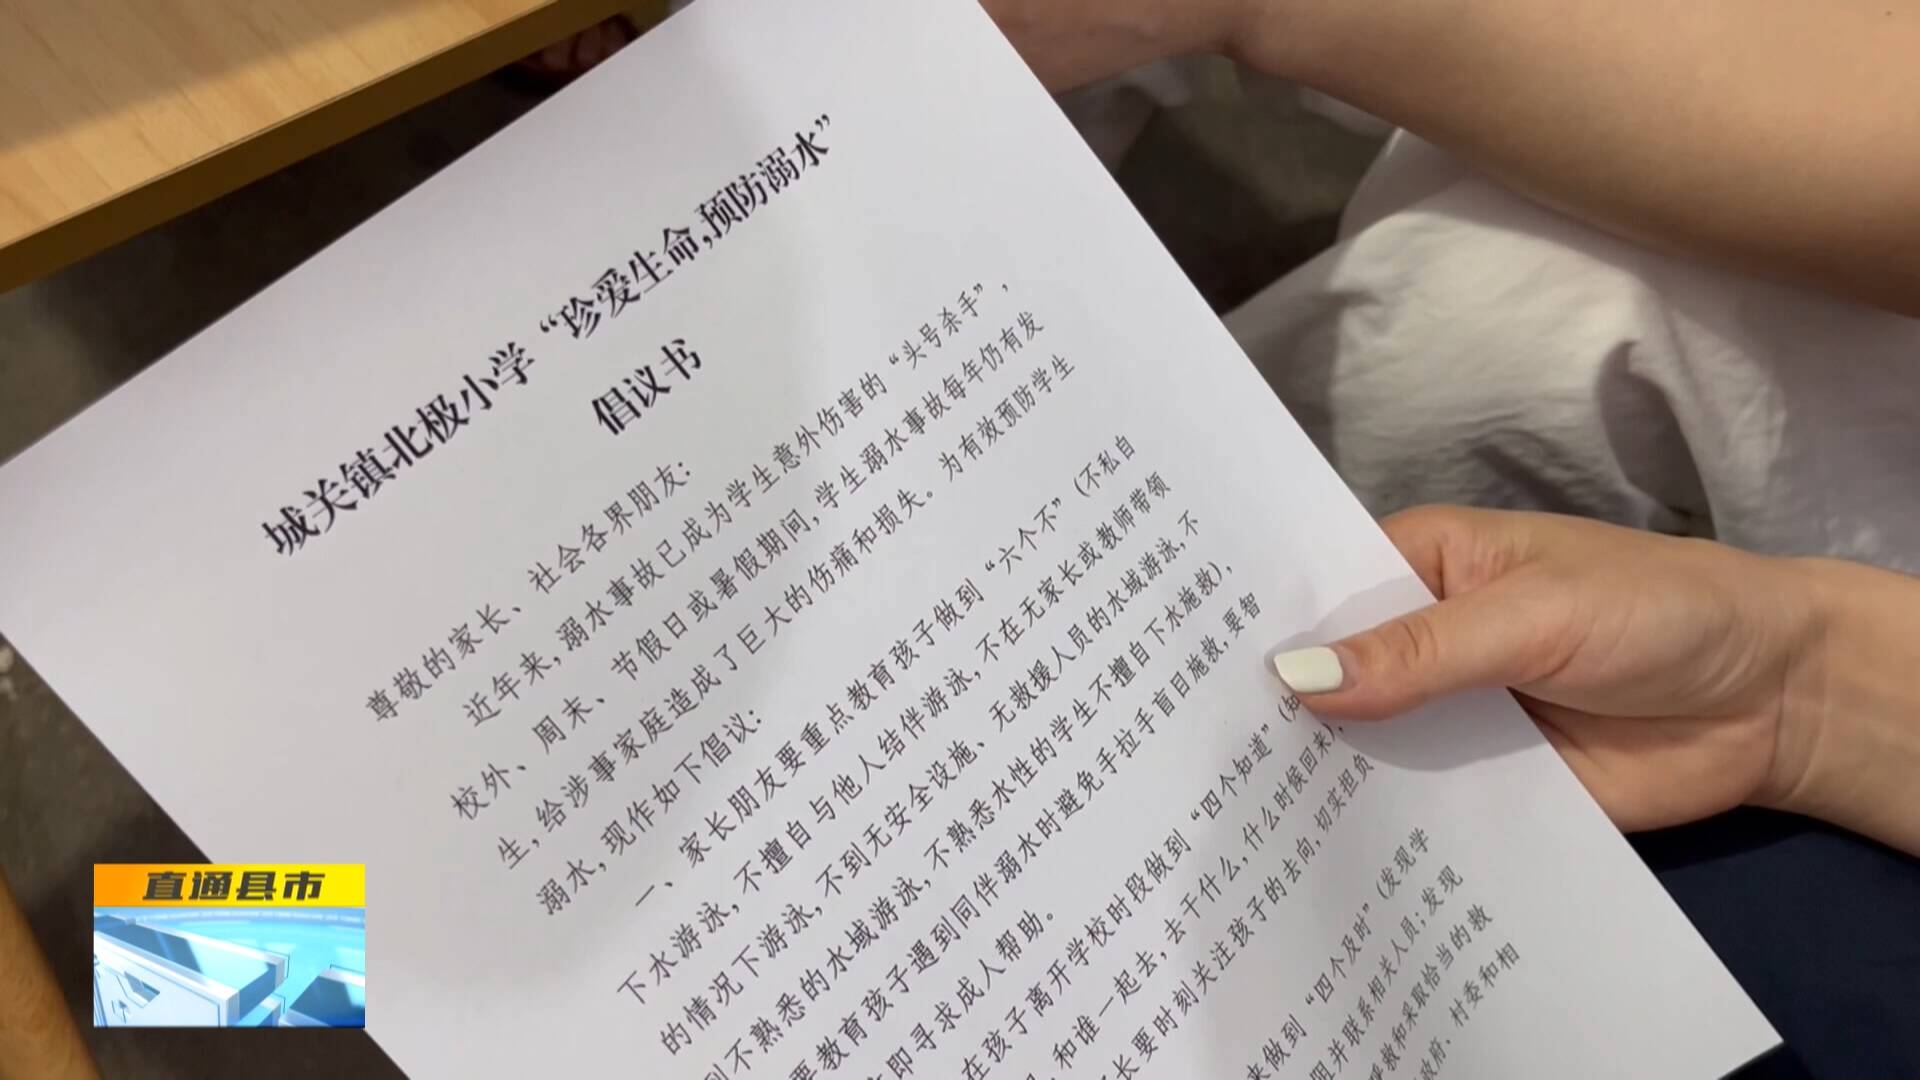 城关镇北极小学“珍爱生命,预防溺水”
倡议书
尊敬的家长、社会各界朋友：
近年来,溺水事故已成为学生意外伤害的“头号杀手”，
校外、周末、节假日或暑假期间,学生溺水事故每年仍有发
生,给涉事家庭造成了巨大的伤痛和损失。为有效预防学生
溺水,现作如下倡议：
一、家长朋友要重点教育孩子做到“六个不”(不私自
下水游泳,不擅自与他人结伴游泳,不在无家长或教师带领
的情况下游泳,不到无安全设施、无救援人员的水域游泳,不
到不熟悉的水域游泳,不熟悉水性的学生不擅自下水施救),
要教育孩子遇到同伴溺水时避免手拉手盲目施救,要智
即寻求成人帮助。
在孩子离开学校时段做到“四个知道”(知
和谁一起去,去干什么,什么时候回来),
长要时刻关注孩子的去向,切实担负
来做到“四个及时”(发现学
阻并联系相关人员;发现
呼救和采取恰当的救
政府、村委和相
直通县市